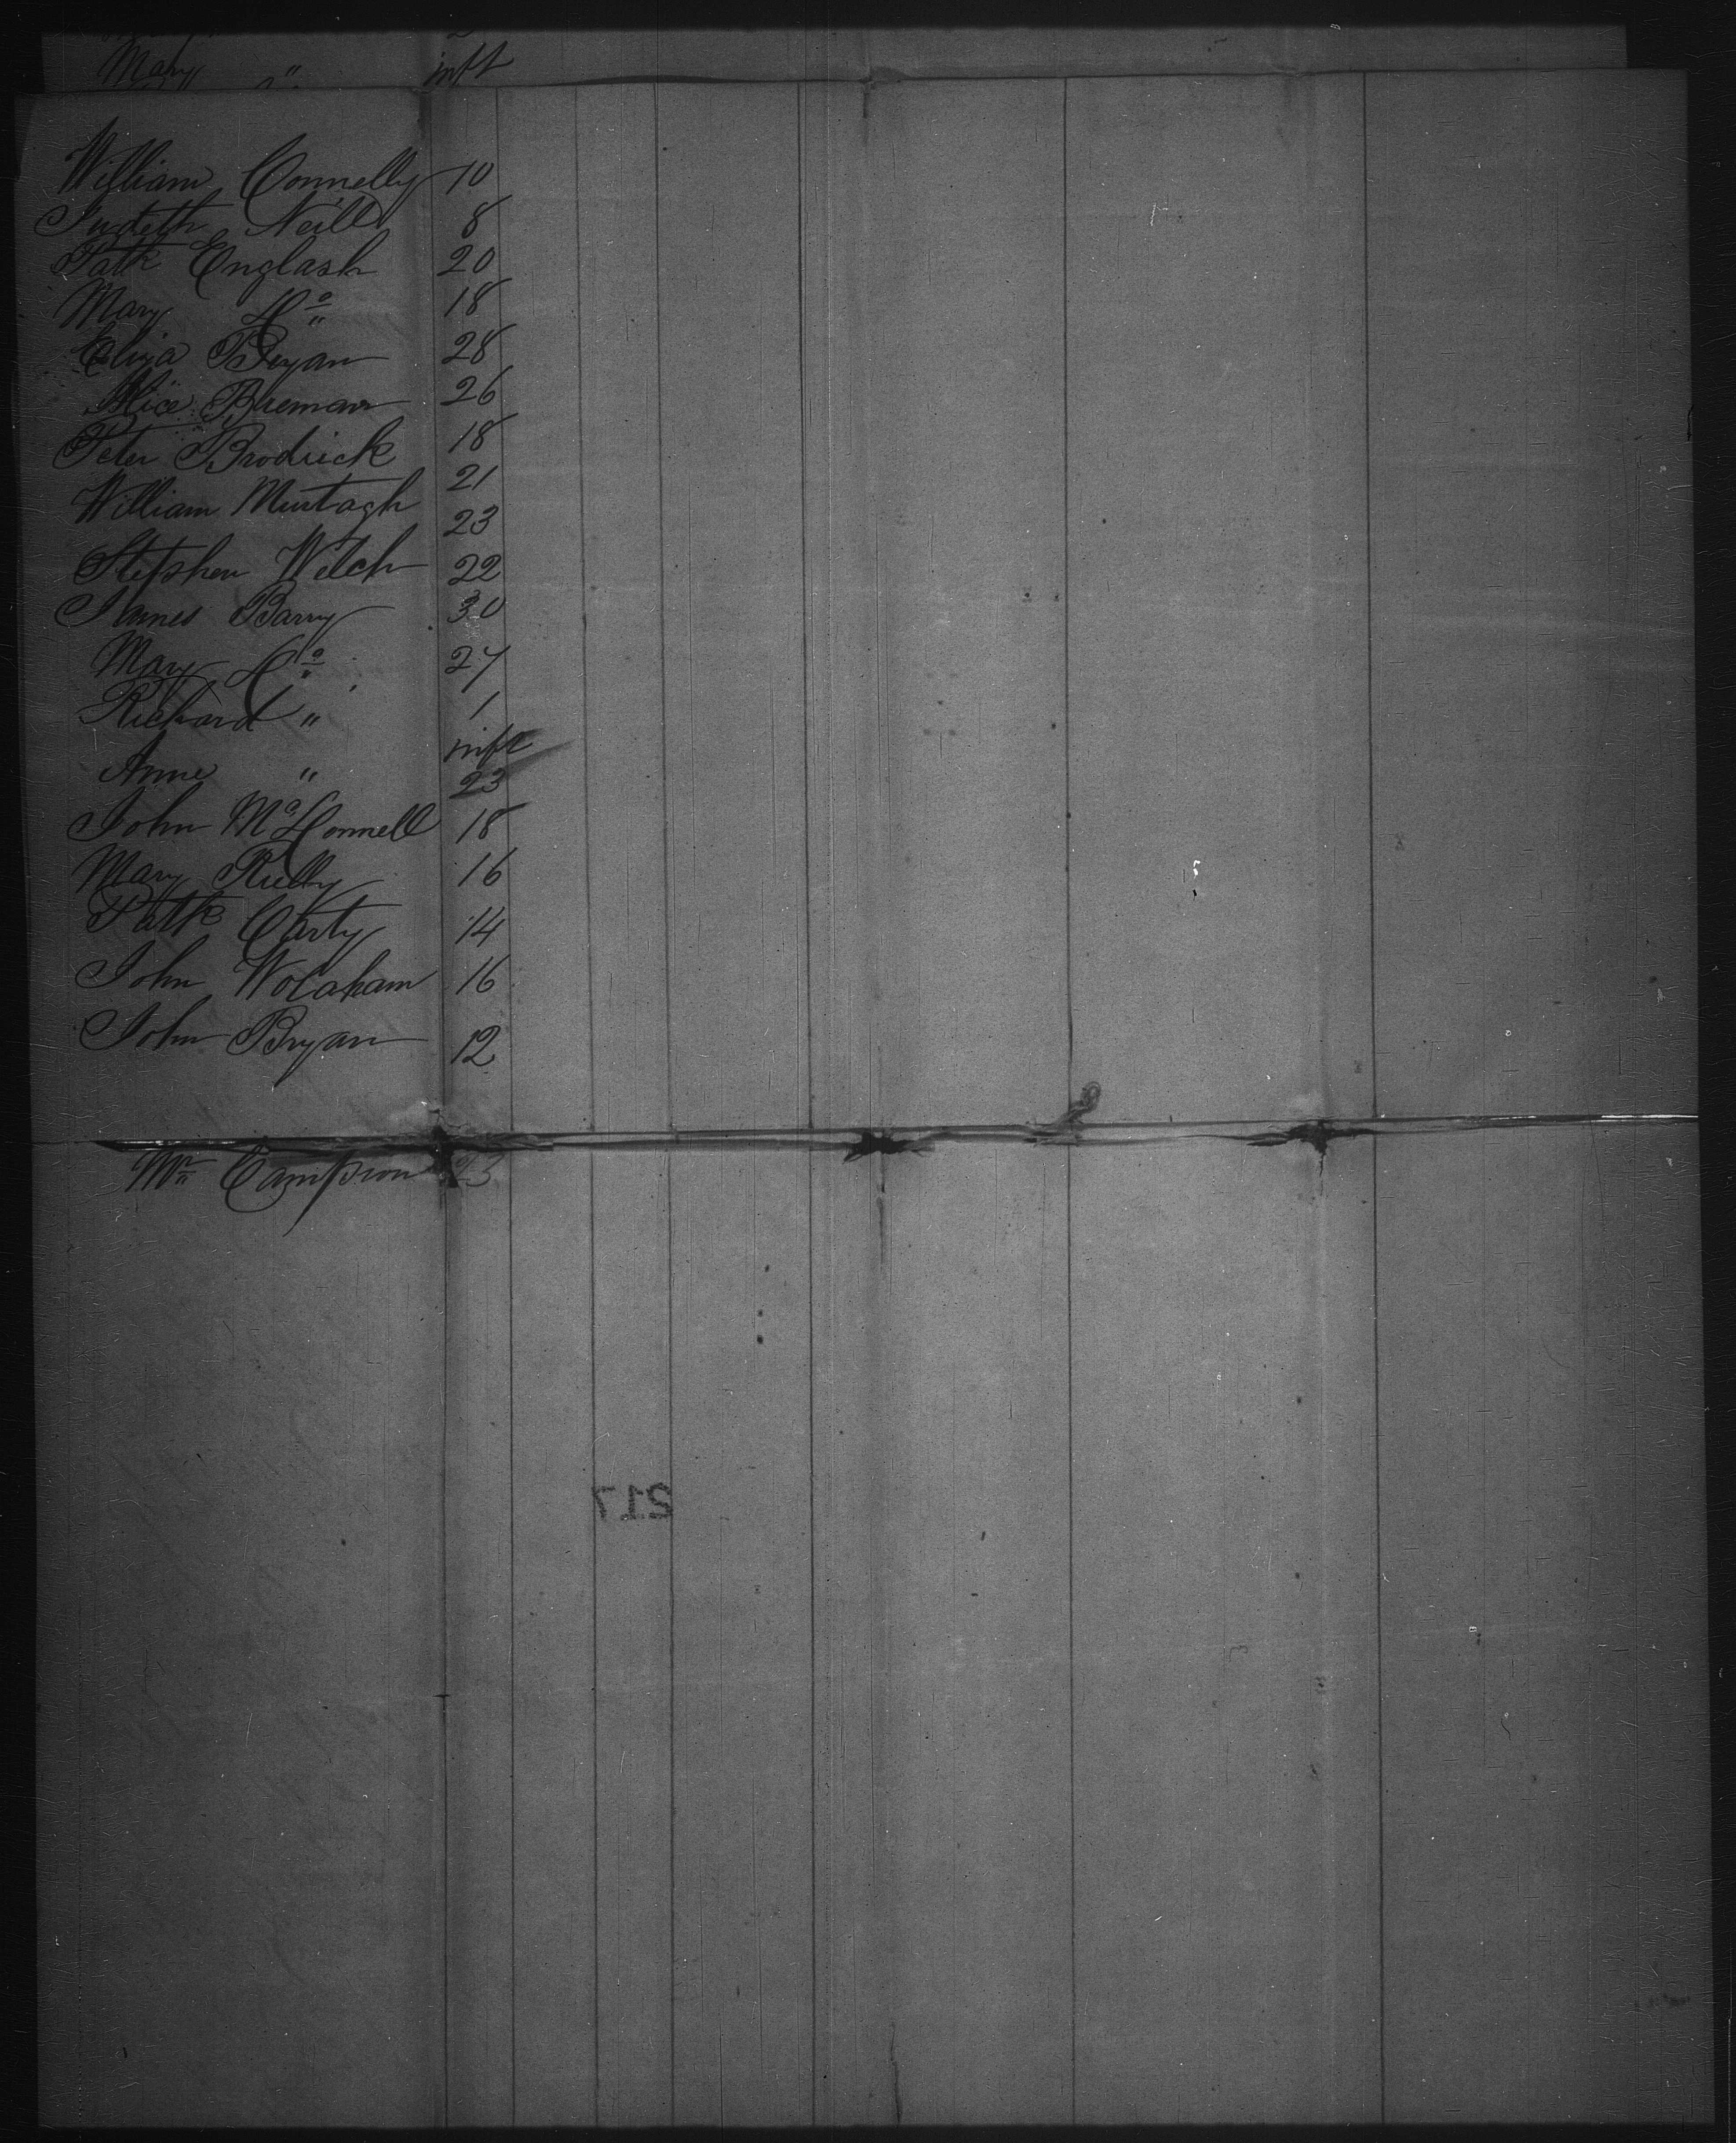 Mary " inft
William Connelly 10
Judeth Neill 8
Patk Englash 20
Mary Do 18
Eliza Bryan 28
Alice Brenan 26
Peter Brodrick 18
William Murtagh 21
23
Stephen Welch 22
James Barry 30
Mary Do 27
Richard " 1
Anne " inft
23
John McDonnell 18
Mary Reilly 16
Patk Carty 14
John Wolaham 16
John Bryan 12
Mr Campion 23
217